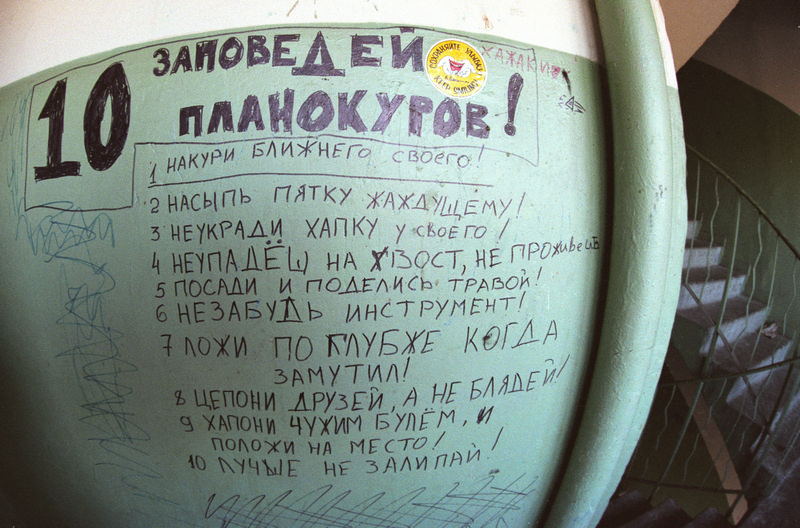 10 ЗАПОВЕДЕЙ
ПЛАНОКУРОВ!
ХАЖАКИ
1 НАКУРИ БЛИЖНЕГО СВОЕГО!
2 НАСЫПЬ ПЯТКУ ЖАЖДУЩЕМУ!
3 НЕУКРАДИ ХАПКУ у своего!
4 НЕУПАДЁШ НА ХВОСТ, НЕ ПРОЖИвеШЬ
5 ПОСАДИ И ПОДЕЛИСЬ ТРАВОЙ!
6 НЕЗАБУДЬ ИНСТРУМЕНТ!
7 ЛОЖИ ПО ГЛУБЖЕ КОГДА
ЗАМУТИЛ!
8 ЦЕПОНИ ДРУЗЕЙ, А НЕ БЛЯДЕЙ!
9 ХАПОНИ ЧУЖИМ БУЛЁМ, И
ПОЛОЖИ НА МЕСТО!
10 ЛУЧЬШЕ НЕ ЗАЛИПАЙ!